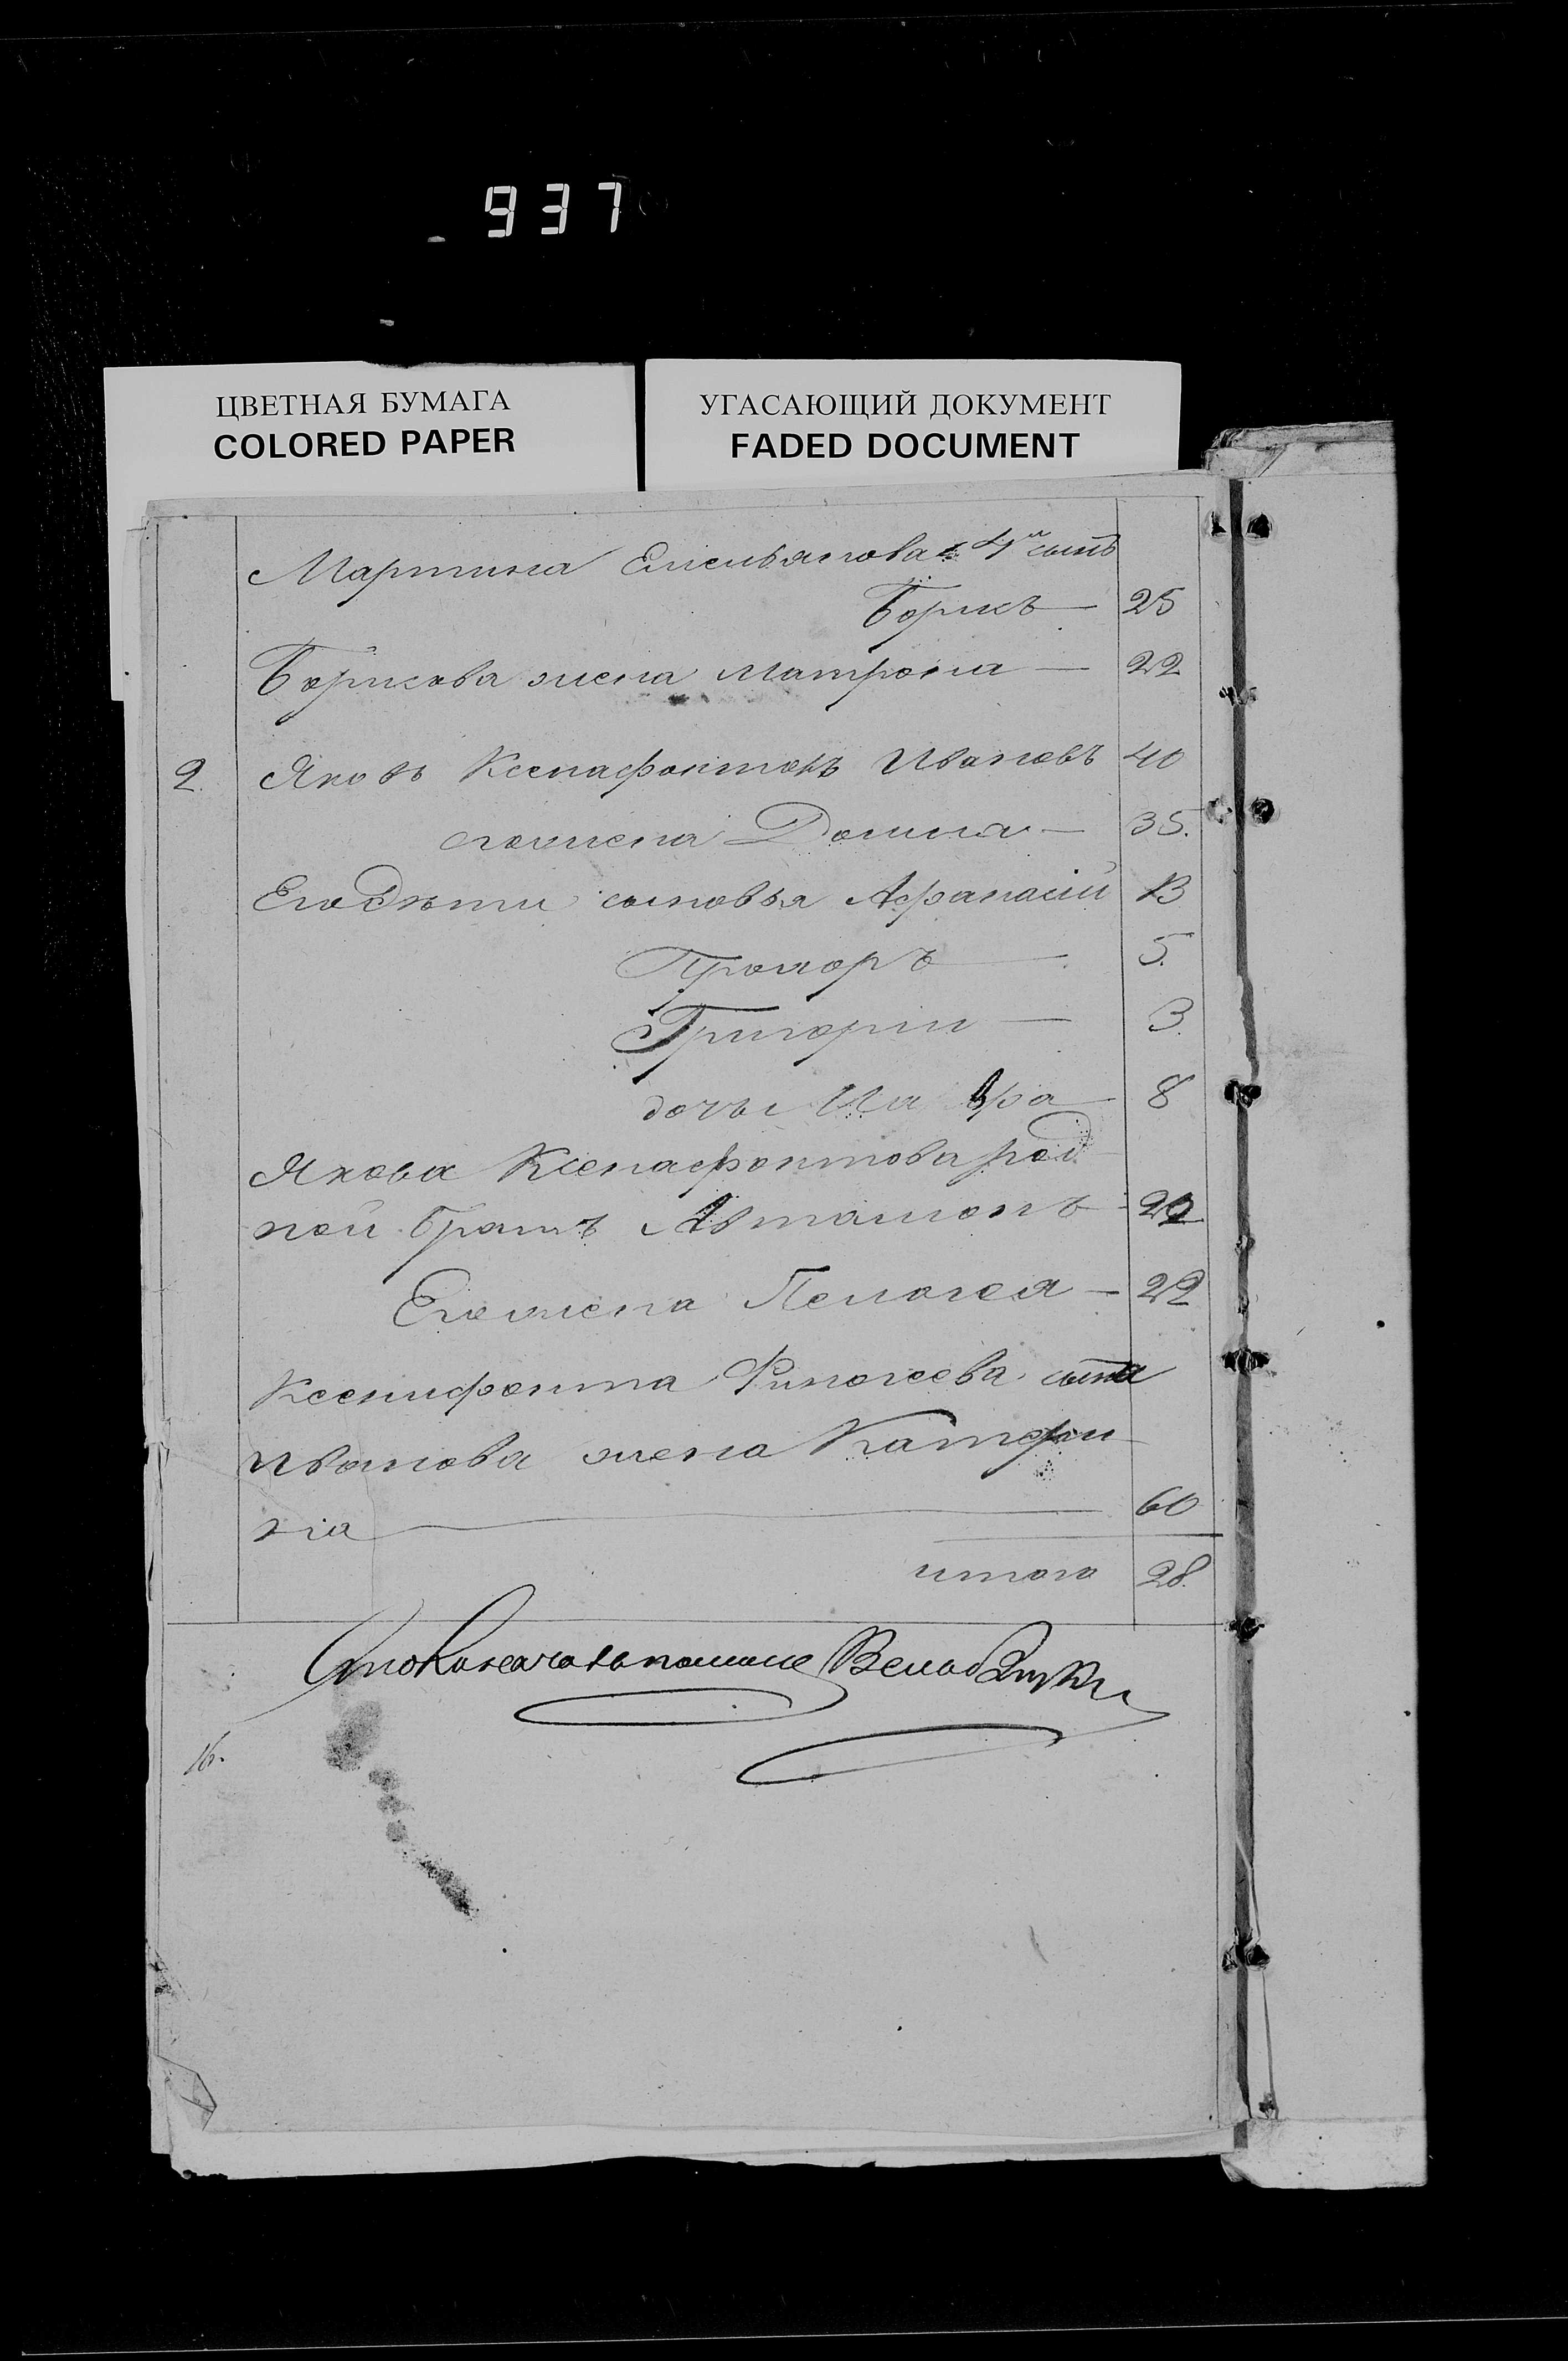 937
ЦВЕТНАЯ БУМАГА
COLORED PAPER
УГАСАЮЩИЙ ДОКУМЕНТ
FADED DOCUMENT
Мартина Емельянова 4й сынъ
Борисъ — 25
Борисова жена Матрона — 22
2. Яковъ Ксенафонтовъ Ивановъ 40
его жена Домна — 35.
Его дѣти сыновья Афанасий 13
Прохоръ — 5.
Григорий — 3.
дочь — 8
Якова Ксенафонтова род
ной братъ Автамонъ
Его жена Пелагея — 22
Ксенифонта сына
Иванова жена Катери
на — 60
итого 28.
16.